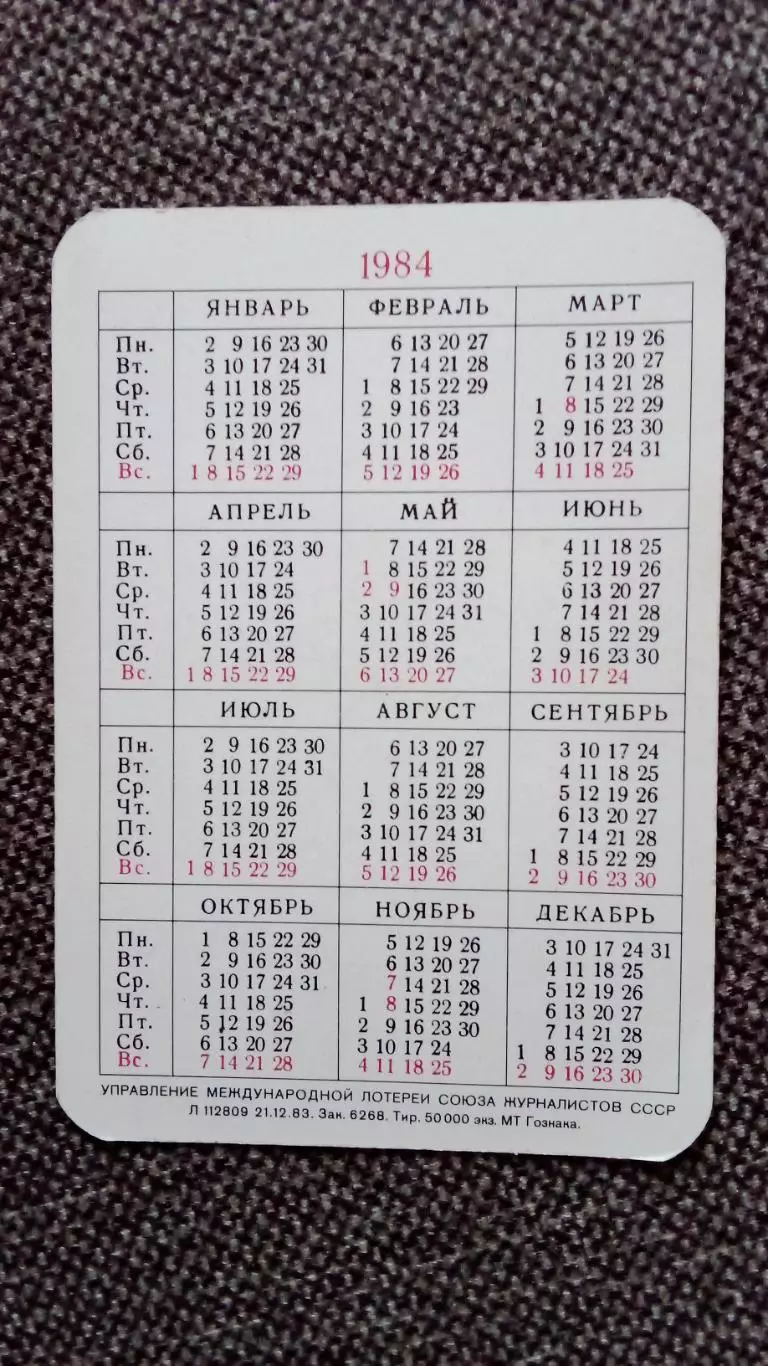 1984
ЯНВАРЬ ФЕВРАЛЬ МАРТ
Пн. 2 9 16 23 30 6 13 20 27 5 12 19 26
Вт. 3 10 17 24 31 7 14 21 28 6 13 20 27
Ср. 4 11 18 25 1 8 15 22 29 7 14 21 28
Чт. 5 12 19 26 2 9 16 23 1 8 15 22 29
Пт. 6 13 20 27 3 10 17 24 2 9 16 23 30
Сб. 7 14 21 28 4 11 18 25 3 10 17 24 31
Вс. 1 8 15 22 29 5 12 19 26 4 11 18 25
АПРЕЛЬ МАЙ ИЮНЬ
Пн. 2 9 16 23 30 7 14 21 28 4 11 18 25
Вт. 3 10 17 24 1 8 15 22 29 5 12 19 26
Ср. 4 11 18 25 2 9 16 23 30 6 13 20 27
Чт. 5 12 19 26 3 10 17 24 31 7 14 21 28
Пт. 6 13 20 27 4 11 18 25 1 8 15 22 29
Сб. 7 14 21 28 5 12 19 26 2 9 16 23 30
Вс. 1 8 15 22 29 6 13 20 27 3 10 17 24
ИЮЛЬ АВГУСТ СЕНТЯБРЬ
Пн. 2 9 16 23 30 6 13 20 27 3 10 17 24
Вт. 3 10 17 24 31 7 14 21 28 4 11 18 25
Ср. 4 11 18 25 1 8 15 22 29 5 12 19 26
Чт. 5 12 19 26 2 9 16 23 30 6 13 20 27
Пт. 6 13 20 27 3 10 17 24 31 7 14 21 28
Сб. 7 14 21 28 4 11 18 25 1 8 15 22 29
Вс. 1 8 15 22 29 5 12 19 26 2 9 16 23 30
ОКТЯБРЬ НОЯБРЬ ДЕКАБРЬ
Пн. 1 8 15 22 29 5 12 19 26 3 10 17 24 31
Вт. 2 9 16 23 30 6 13 20 27 4 11 18 25
Ср. 3 10 17 24 31 7 14 21 28 5 12 19 26
Чт. 4 11 18 25 1 8 15 22 29 6 13 20 27
Пт. 5 12 19 26 2 9 16 23 30 7 14 21 28
Сб. 6 13 20 27 3 10 17 24 1 8 15 22 29
Вс. 7 14 21 28 4 11 18 25 2 9 16 23 30
УПРАВЛЕНИЕ МЕЖДУНАРОДНОЙ ЛОТЕРЕИ СОЮЗА ЖУРНАЛИСТОВ СССР
Л 112809 21.12.83. Зак. 6268. Тир. 50 000 экз. МТ Гознака.